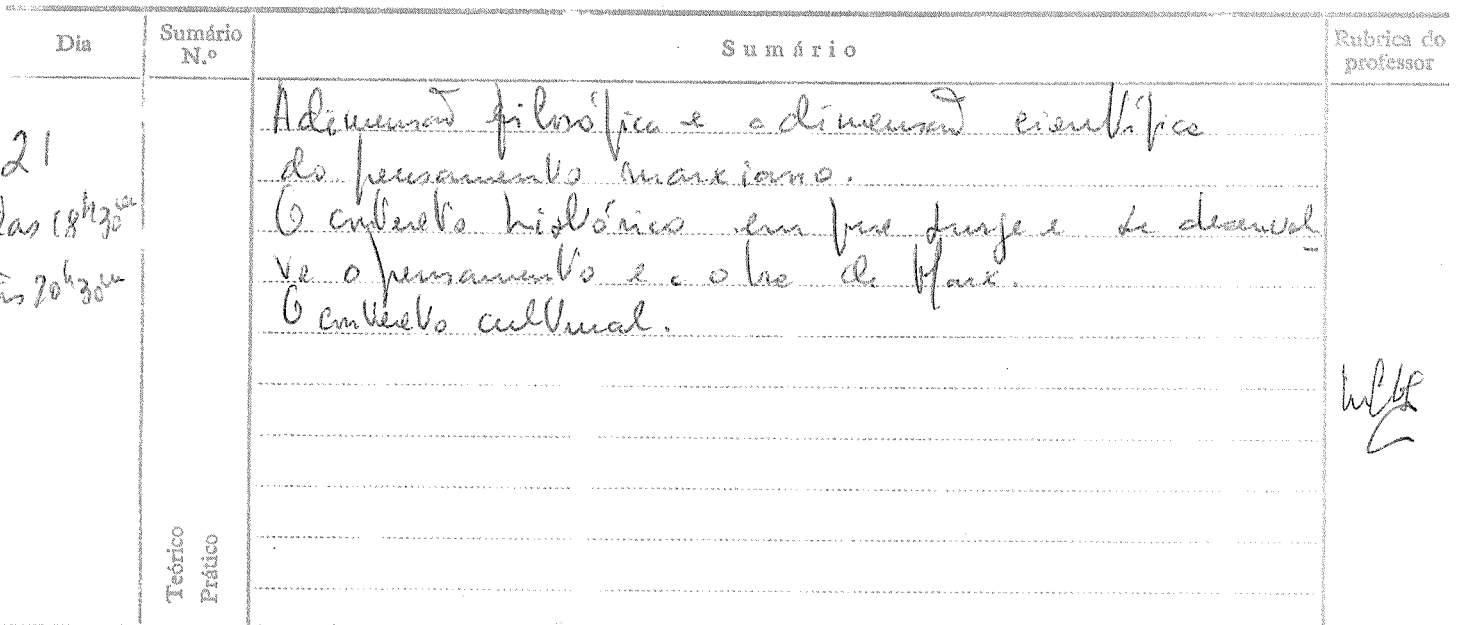 Dia
Sumário N.º
Sumário
Rubrica do professor
21
das 18h30m
às 20h30m
A dimensão filosófica e a dimensão científica
do pensamento marxiano.
O contexto histórico em que surge e se desenvol-
ve o pensamento e a obra de Marx.
O contexto cultural.
Teórico
Prático